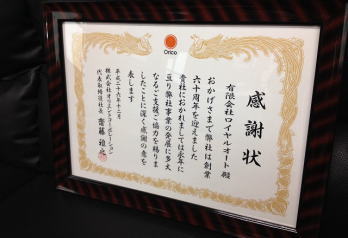 Orico
感謝状
有限会社ロイヤルオート殿
おかげさまで弊社は創業
六十周年を迎えました
貴社におかれましては永年に
亘り弊社事業の発展に多大
なるご支援ご協力を賜りま
したことに深く感謝の意を
表します
平成二十六年十二月
株式会社オリエントコーポレーション
代表取締役社長 齋藤雅之